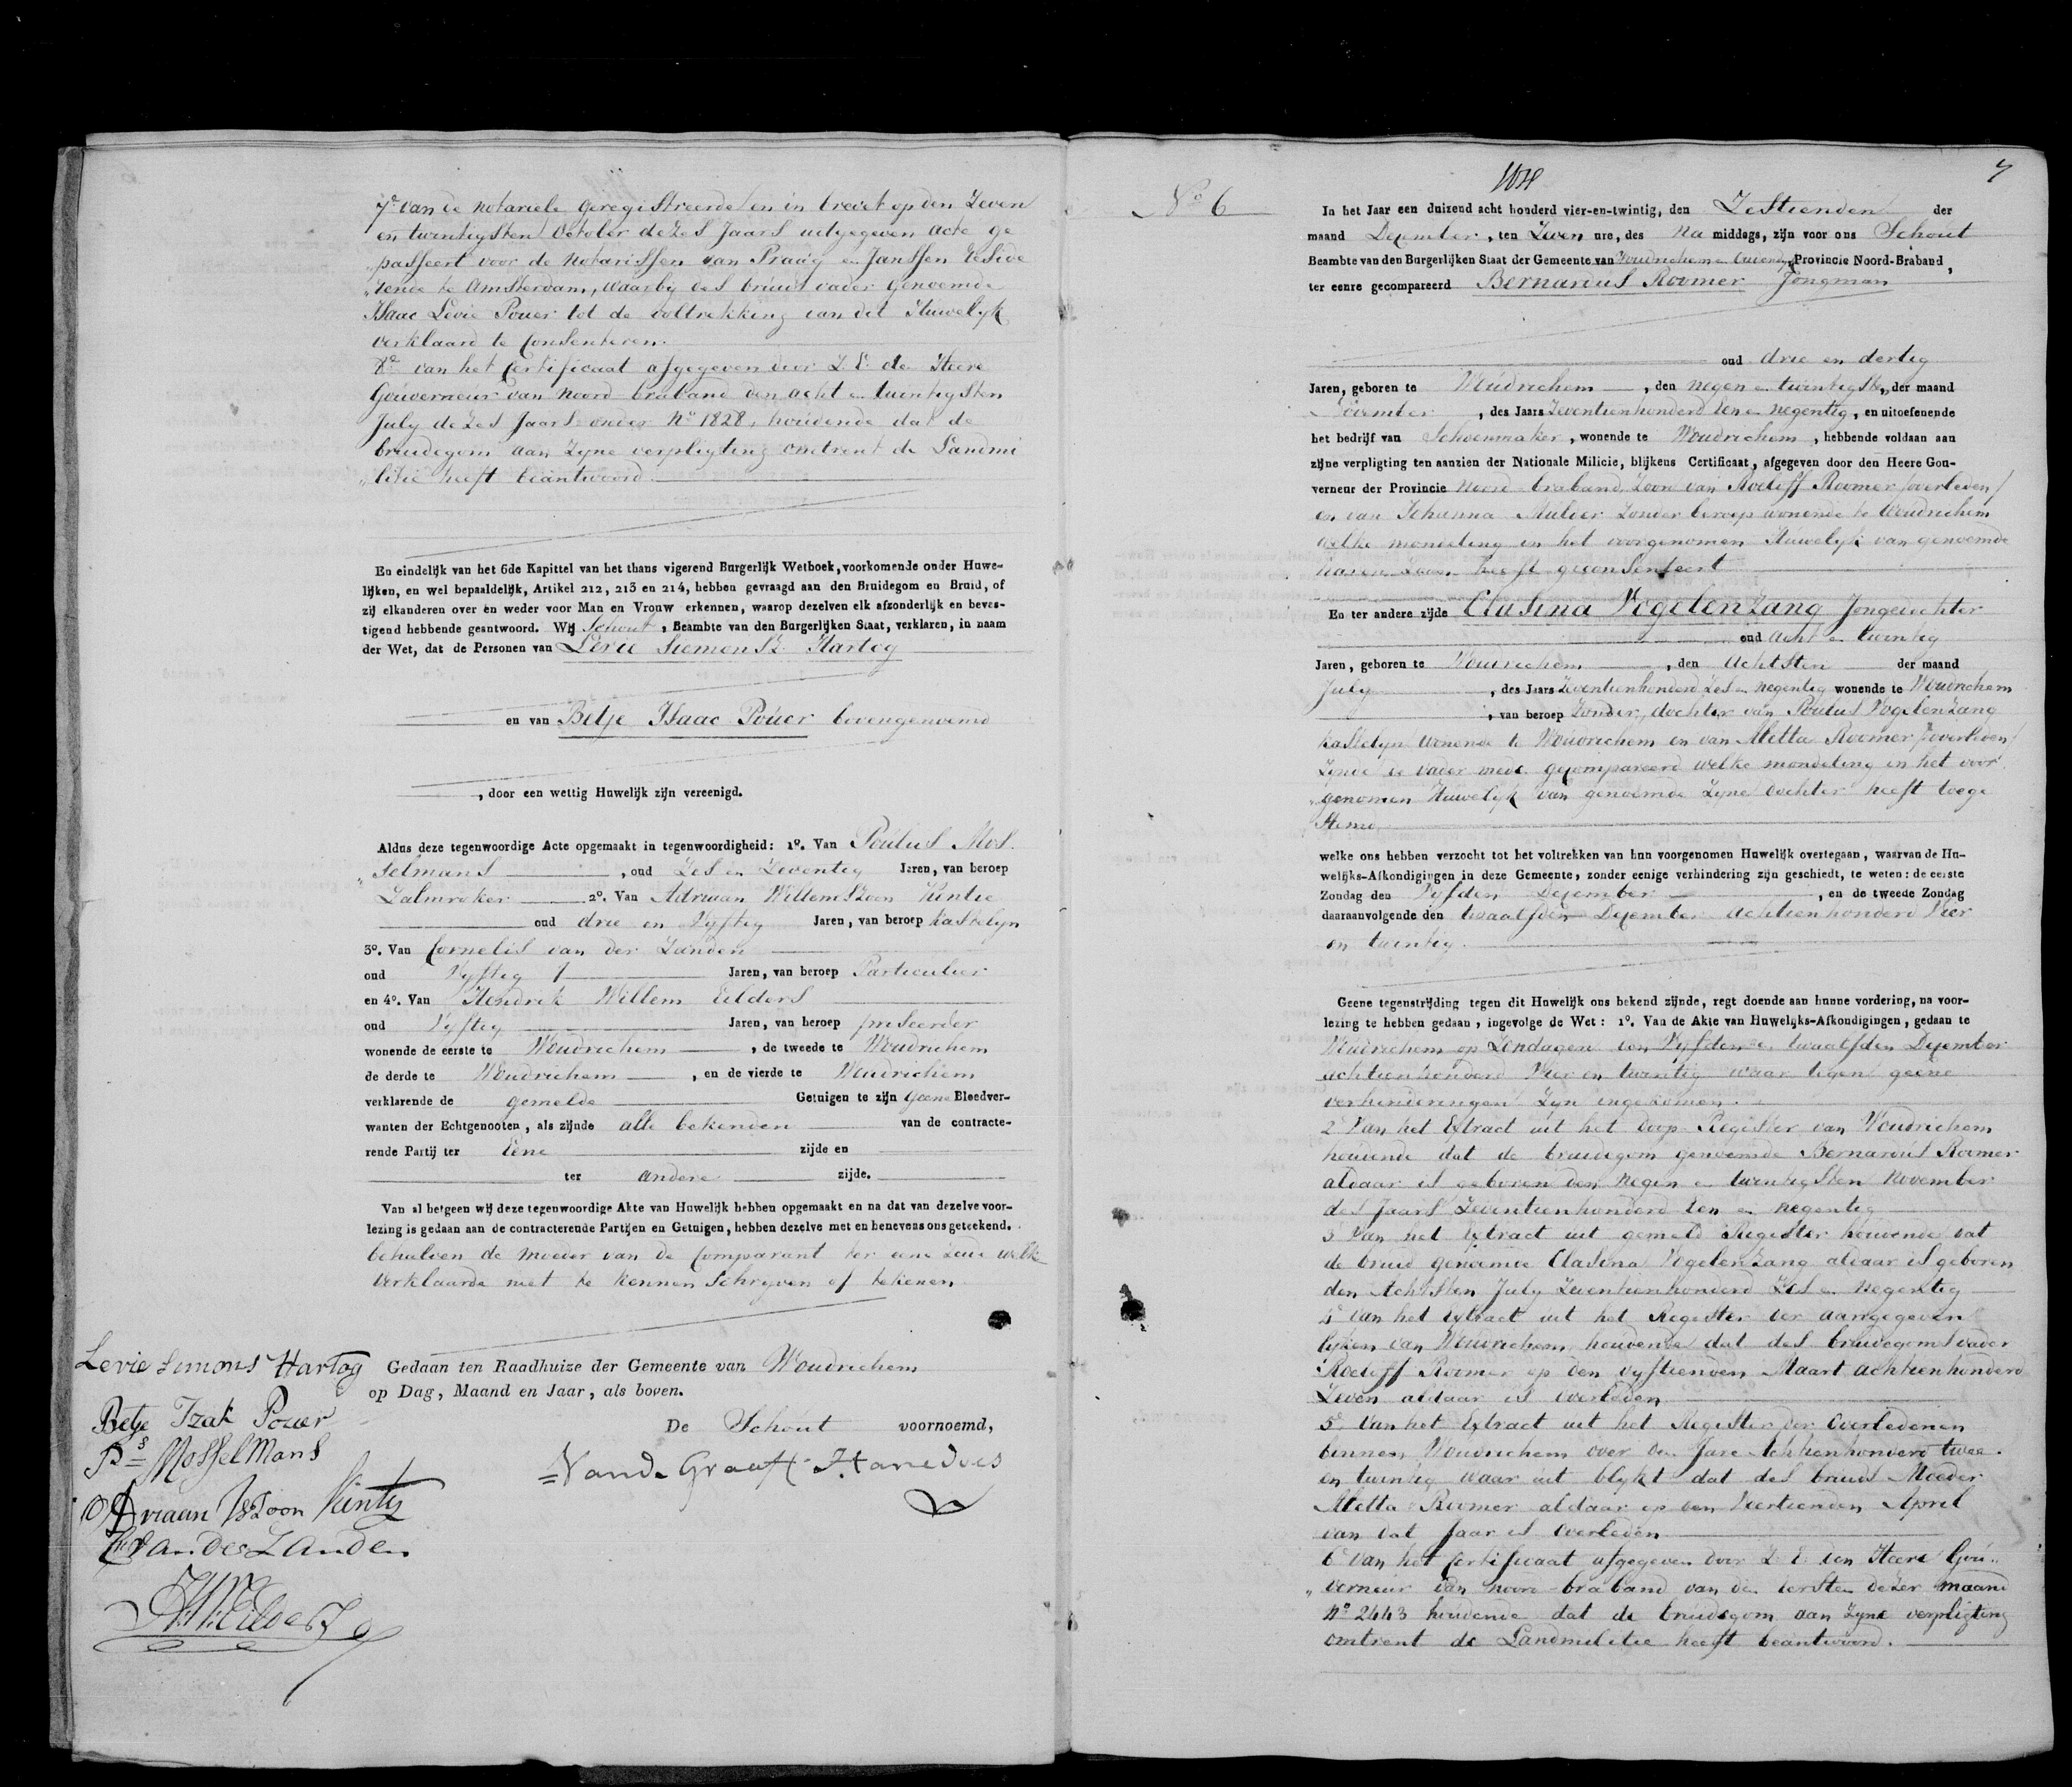 7e van de notariele geregistreerde en in brevet op den Zeven
en twintigsten October dezes Jaars uitgegeven acte ge
„passeert voor de Notarissen van Praag en Janssen reside
„rende te Amsterdam, waarby des bruids vader genoemde
Isaac Levie Pouer tot de voltrekking van dit Huwelyk
verklaard te Consenteren.
8e van het Certificaat afgegeven door Z. E. de Heere
Gouverneur van Noord braband den acht en twintigsten
July dezes Jaars onder No 1828, houdende dat de
bruidegom aan zyne verpligting omtrent de Landmi
„litie heeft beantwoord.
En eindelijk van het 6de Kapittel van het thans vigerend Burgerlijk Wetboek, voorkomende onder Huwe-
lijken, en wel bepaaldelijk, Artikel 212, 213 en 214, hebben gevraagd aan den Bruidegom en Bruid, of
zij elkanderen over en weder voor Man en Vrouw erkennen, waarop dezelven elk afzonderlijk en beves-
tigend hebbende geantwoord. Wij Schout, Beambte van den Burgerlijken Staat, verklaren, in naam
der Wet, dat de Personen van Levie Siemonsz Hartog
en van Betje Isaac Pouer bovengenoemd
, door een wettig Huwelijk zijn vereenigd.
Aldus deze tegenwoordige Acte opgemaakt in tegenwoordigheid: 1o. Van Poulus Mos
„selmans, oud Zes en Zeventig Jaren, van beroep
Zalmroker 2o. Van Adriaan Willemszoon Kuntie
oud drie en Vyftig Jaren, van beroep Kastelyn
3o. Van Cornelis van der Zanden
oud Vyftig Jaren, van beroep Particulier
en 4o. Van Hendrik Willem Eilders
oud Vyftig Jaren, van beroep
wonende de eerste te Woudrichem, de tweede te Woudrichem
de derde te Woudrichem, en de vierde te Woudrichem
verklarende de gemelde Getuigen te zijn Geene Bloedver-
wanten der Echtgenooten, als zijnde alle bekenden van de contracte-
rende Partij ter Eene zijde en
ter andere zijde.
Van al hetgeen wij deze tegenwoordige Akte van Huwelijk hebben opgemaakt en na dat van dezelve voor-
lezing is gedaan aan de contracterende Partijen en Getuigen, hebben dezelve met en benevens ons geteekend.
behalven de moeder van de Comparant ter eene zeide welke
verklaarde niet te kennen Schryven of tekenen
Gedaan ten Raadhuize der Gemeente van Woudrichem
op Dag, Maand en Jaar, als boven.
De Schout voornoemd,
Levie Simons Hartog
Betje Izak Pouer
Ps Mosselmans
Adriaan WsZoon
van der Zanden
No 6
7
In het Jaar een duizend acht honderd vier-en-twintig, den Zestienden der
maand December, ten Zeven ure, des Na middags, zijn voor ons Schout
Beambte van den Burgerlijken Staat der Gemeente van Woudrichem Provincie Noord-Braband,
ter eenre gecompareerd Bernardus Roomer Jongman
oud drie en dertig
Jaren, geboren te Woudrichem, den negen en twintigsten der maand
November, des Jaars Zeventienhonderd een en negentig, en uitoefenende
het bedrijf van Schoenmaker, wonende te Woudrichem, hebbende voldaan aan
zijne verpligting ten aanzien der Nationale Milicie, blijkens Certificaat, afgegeven door den Heere Gou-
verneur der Provincie Noord-braband, Zoon van Roeloff Roomer /overleden/
en van Johanna Mulier Zonder beroep wonende te Woudrichem
welke mondeling in het voorgenomen Huwelyk van genoemde
haren Zoon heeft geconsenteert
En ter andere zijde Clasina Vogelenzang Jongedochter
oud Acht en twintig
Jaren, geboren te Woudrichem, den Achtsten der maand
July, des Jaars Zeventienhonderd Zes en negentig wonende te Woudrichem
, van beroep Zonder, dochter van Poulus Vogelenzang
Kastelyn Wonende te Woudrichem en van Aletta Roomer /overleden/
Zynde de vader mede gecompareerd welke mondeling in het voor
„genomen Huwelyk van genoemde Zyne dochter heeft toege
stemd,
welke ons hebben verzocht tot het voltrekken van hun voorgenomen Huwelijk overtegaan, waarvan de Hu-
welijks-Afkondigingen in deze Gemeente, zonder eenige verhindering zijn geschiedt, te weten: de eerste
Zondag den Vyfden December, en de tweede Zondag
daaraanvolgende den twaalfden December Achtienhonderd Vier
en twintig.
Geene tegenstrijding tegen dit Huwelijk ons bekend zijnde, regt doende aan hunne vordering, na voor-
lezing te hebben gedaan, ingevolge de Wet: 1o. Van de Akte van Huwelijks-Afkondigingen, gedaan te
Woudrichem op Zondagen den Vyfden en twaalfden December
achtienhonderd Vier en twintig waar tegen geene
verhinderingen Zyn ingekomen.
2e Van het Extract uit het Doop-Register van Woudrichem
houdende dat de bruidegom genoemde Bernardus Roomer
aldaar is geboren den Negen en twintigsten November
des Jaars Zeventienhonderd een en negentig
3e Van het Extract uit gemeld Register houdende dat
de bruid genoemde Clasina Vogelenzang aldaar is geboren
den Achtsten July Zeventienhonderd Zes en Negentig
4e Van het Extract uit het Register der aangegeven
lyken van Woudrichem, houdende dat des bruidegoms vader
Roeloff Roomer op den vyftienden Maart achtienhonderd
Zeven aldaar is overleden
5e Van het Extract uit het Register der Overledenen
binnen Woudrichem over den Jare Achtienhonderd twee
en twintig waar uit blykt dat des bruids Moeder
Aletta Roomer aldaar op den Veertienden April
van dat Jaar is Overleden
6e Van het Certificaat afgegeven door Z. E. den Heere Gou„
„verneur van noord-braband van den eersten dezer maand
No 2443 houdende dat de bruidegom aan Zyne verpligting
omtrent de Landmilitie heeft beantwoord.